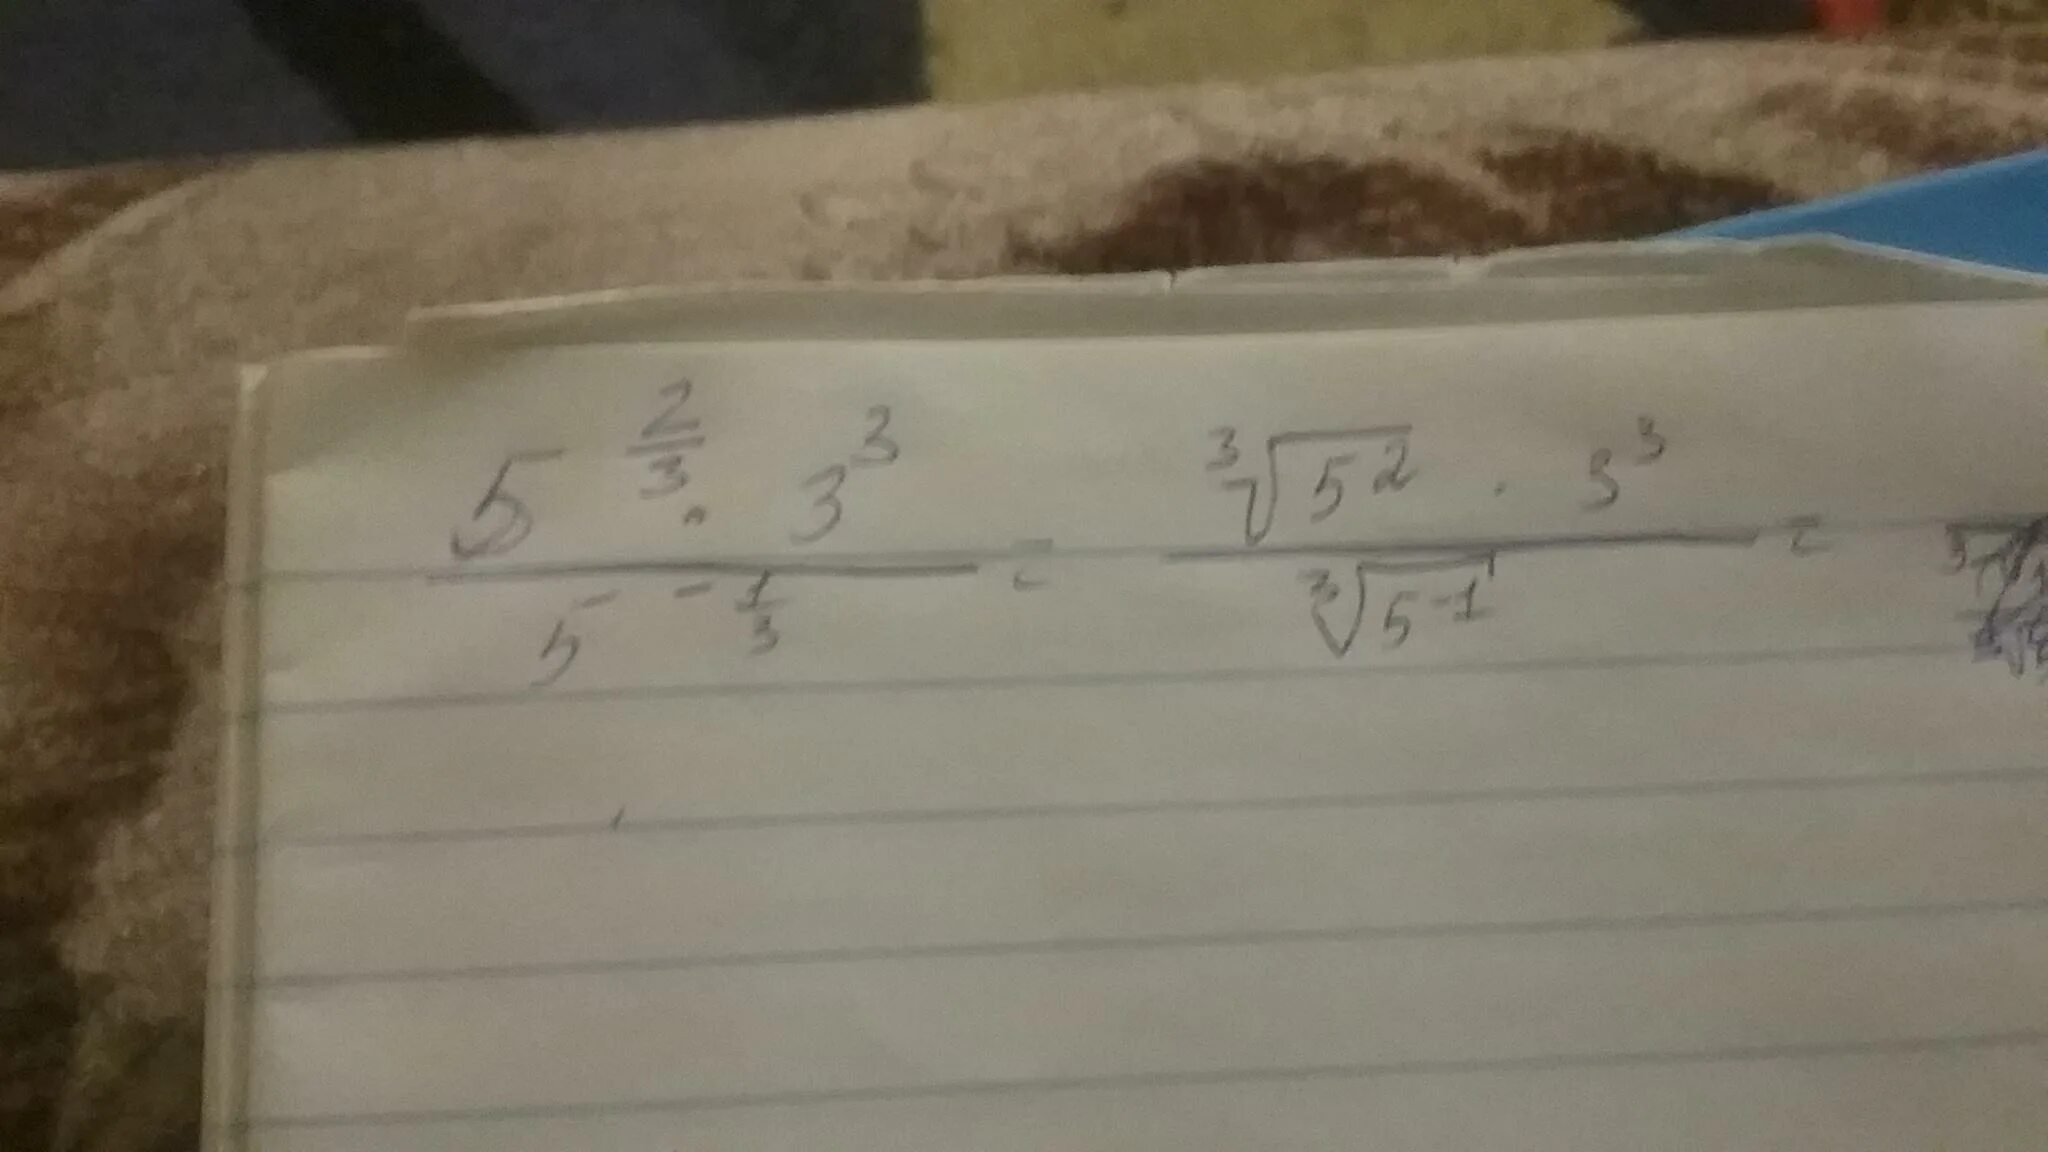 5^(2/3) · 3^3 / 5^(-1/3) = ∛(5^2) · 3^3 / ∛(5^-1) =